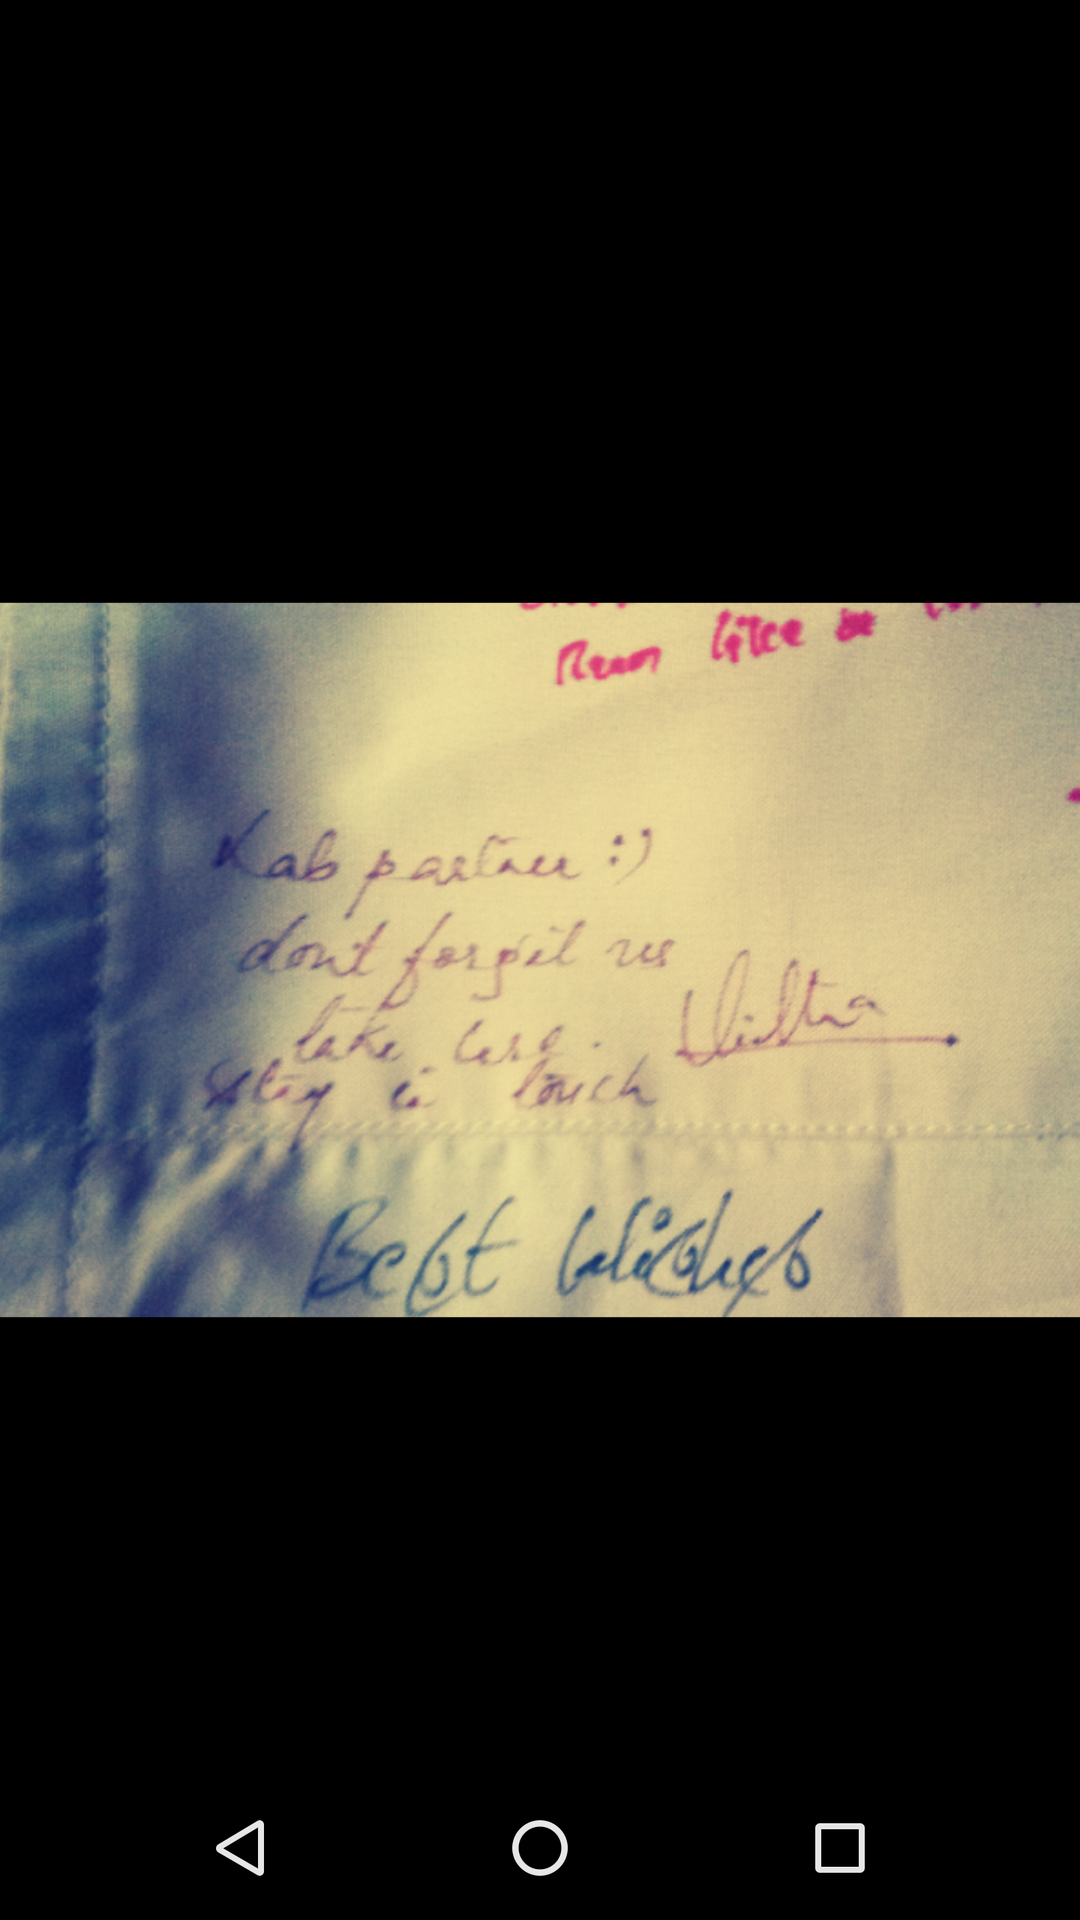 like
Lab partner :)
dont forget us
take care.
Stay in touch
Best Wishes